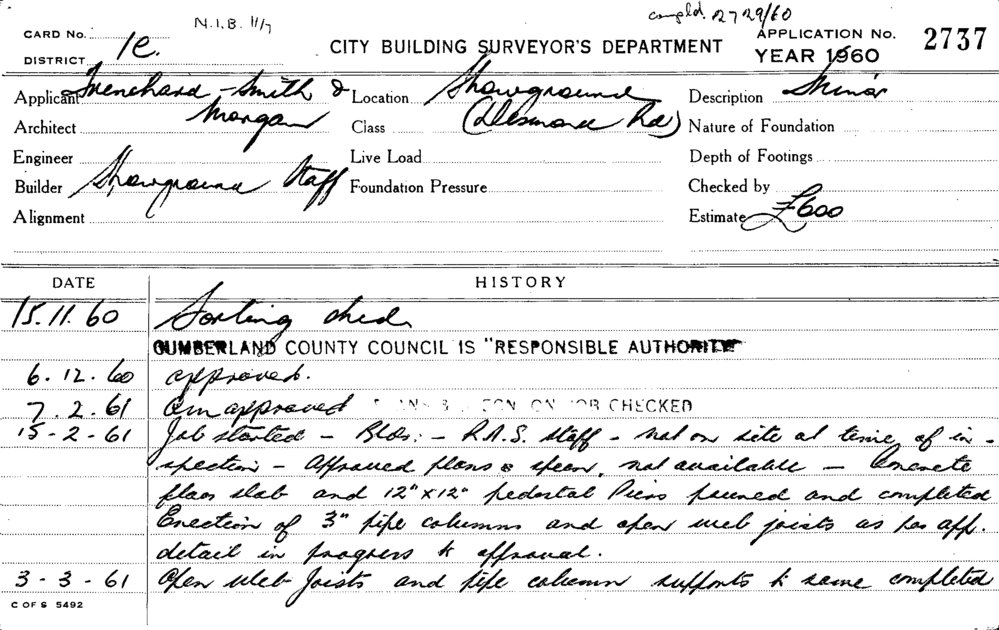 N.I.B. 11/7
compld. 2729/60
CARD No.
CITY BUILDING SURVEYOR'S DEPARTMENT
APPLICATION No. 2737
DISTRICT 1c.
YEAR 1960
Applicant Trenchard-Smith &
Location Showground
Description Minor
Architect Morgan
Class (Desmond Rd)
Nature of Foundation
Engineer
Live Load
Depth of Footings
Builder Showground Staff
Foundation Pressure
Checked by
Alignment
Estimate £600
DATE HISTORY
15.11.60 Sorting shed
CUMBERLAND COUNTY COUNCIL IS "RESPONSIBLE AUTHORITY"
6.12.60 approved.
7.2.61 approved ON JOB CHECKED
15-2-61 Job started - Bldr:- R.A.S. Staff - not on site at time of in-
spection - Approved plans & specn. not available - Concrete
floor slab and 12" x 12" pedestal Piers poured and completed
Erection of 3" pipe columns and open web joists as per app.
detail in progress to approval.
3-3-61 Open Web Joists and pipe column supports to same completed
C OF S 5492